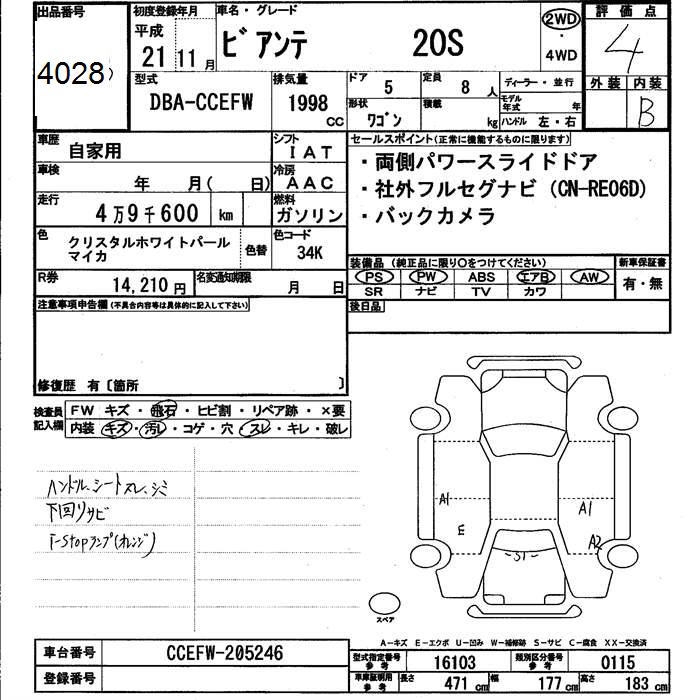 出品番号
4028
初度登録年月
平成
21 11月
車名・グレード
ビアンテ 20S
2WD
・
4WD
評価点
4
型式
DBA-CCEFW
排気量
1998
CC
ドア
5
定員
8人
ディーラー・並行
形状
ワゴン
積載
kg
モデル年式 年
ハンドル 左・右
外装 内装
B
車歴
自家用
シフト
IAT
セールスポイント(正常に機能するものに限ります)
・両側パワースライドドア
・社外フルセグナビ(CN-RE06D)
・バックカメラ
車検
年 月( 日)
冷房
AAC
走行
4万9千600 km
燃料
ガソリン
色
クリスタルホワイトパール
マイカ
色替
色コード
34K
装備品(純正品に限り○をつけてください)
PS PW ABS エアB AW
SR ナビ TV カワ
新車保証書
有・無
R券
14,210円
名変通知期限
月 日
後日品
注意事項申告欄(不具合内容等は具体的に記入して下さい)
修復歴 有〔箇所 〕
検査員
記入欄
FW キズ・飛石・ヒビ割・リペア跡・×要
内装 キズ・汚レ・コゲ・穴・スレ・キレ・破レ
ハンドル、シートスレ、シミ
下回リサビ
i-Stopランプ(オレンジ)
A1
E
A1
A2
S1
スペア
A-キズ E-エクボ U-凹み W-補修跡 S-サビ C-腐食 XX-交換済
車台番号
CCEFW-205246
登録番号
型式指定番号
参考
16103
類別区分番号
参考
0115
車庫証明用
参考
長さ
471cm
幅
177cm
高さ
183cm